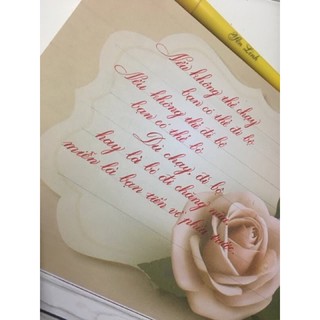 Nếu không thể chạy
bạn có thể đi bộ
Nếu không thể đi bộ
bạn có thể bò
Dù chạy, đi bộ
hay là bò đi chăng nữa
miễn là bạn tiến về phía trước